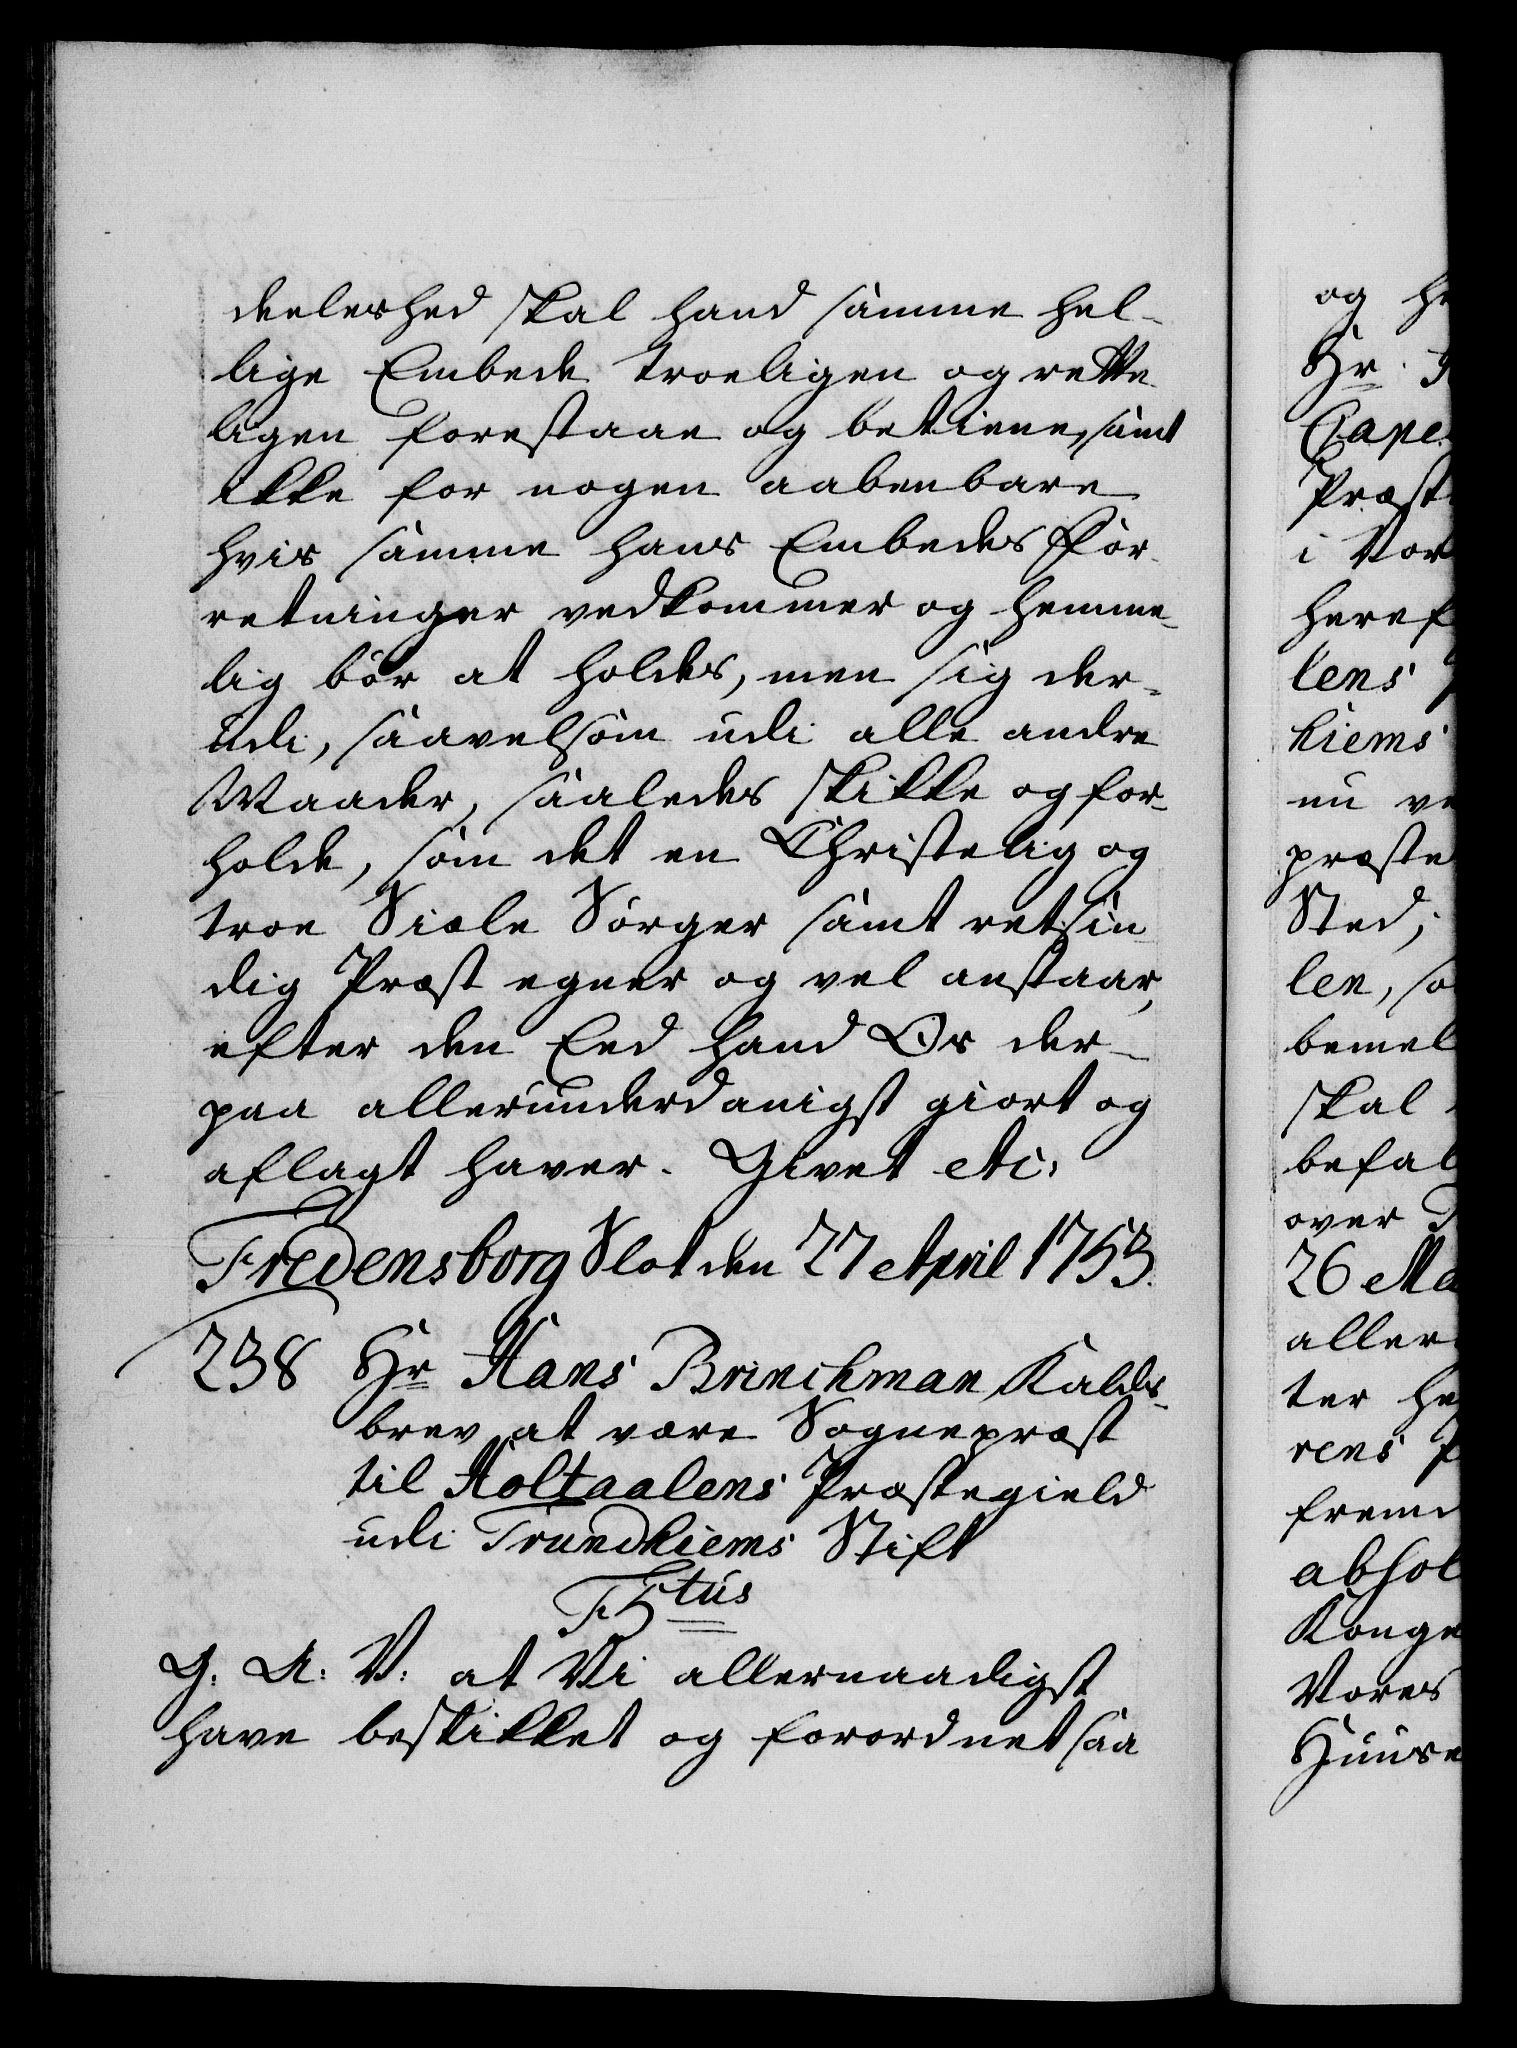 deelerhed skal hand samme hel-
lige Embede troeligen og rette
ligen forestaae og betiene, samt
ikke for nogen aabenbare
hvis samme hans Embedes For-
retninger vedkommer og hemme-
lig bør at holdes, men sig der-
udi, saavelsom udi alle andre
Maader, saaledes skikke og for-
holde, som det en Christelig og
troe Siæle Sørger samt retsin
dig Præst egner og vel anstaar,
efter den Eed hand Os der-
paa allerunderdanigst giort og
aflagt haver. Givet etc:
Fredensborg Slot den 27 April 1753.
238 Hr Hans Brinchman Kalds-
brev at være Sognepræst
til Holtaalens Præstegield
udi Trundhiems Stift
F5tus
G. A: V: at Vi allernaadigst
have beskikket og forordnet saa
og he
Hr.
Cape
Præst
i Vor
heref
lens
hiems
nu ve
præste
Sted;
len, so
bemel
skal
befal
over
26 Ma
aller
ter he
rens
fremd
absol
Konge
Vores
Huuse